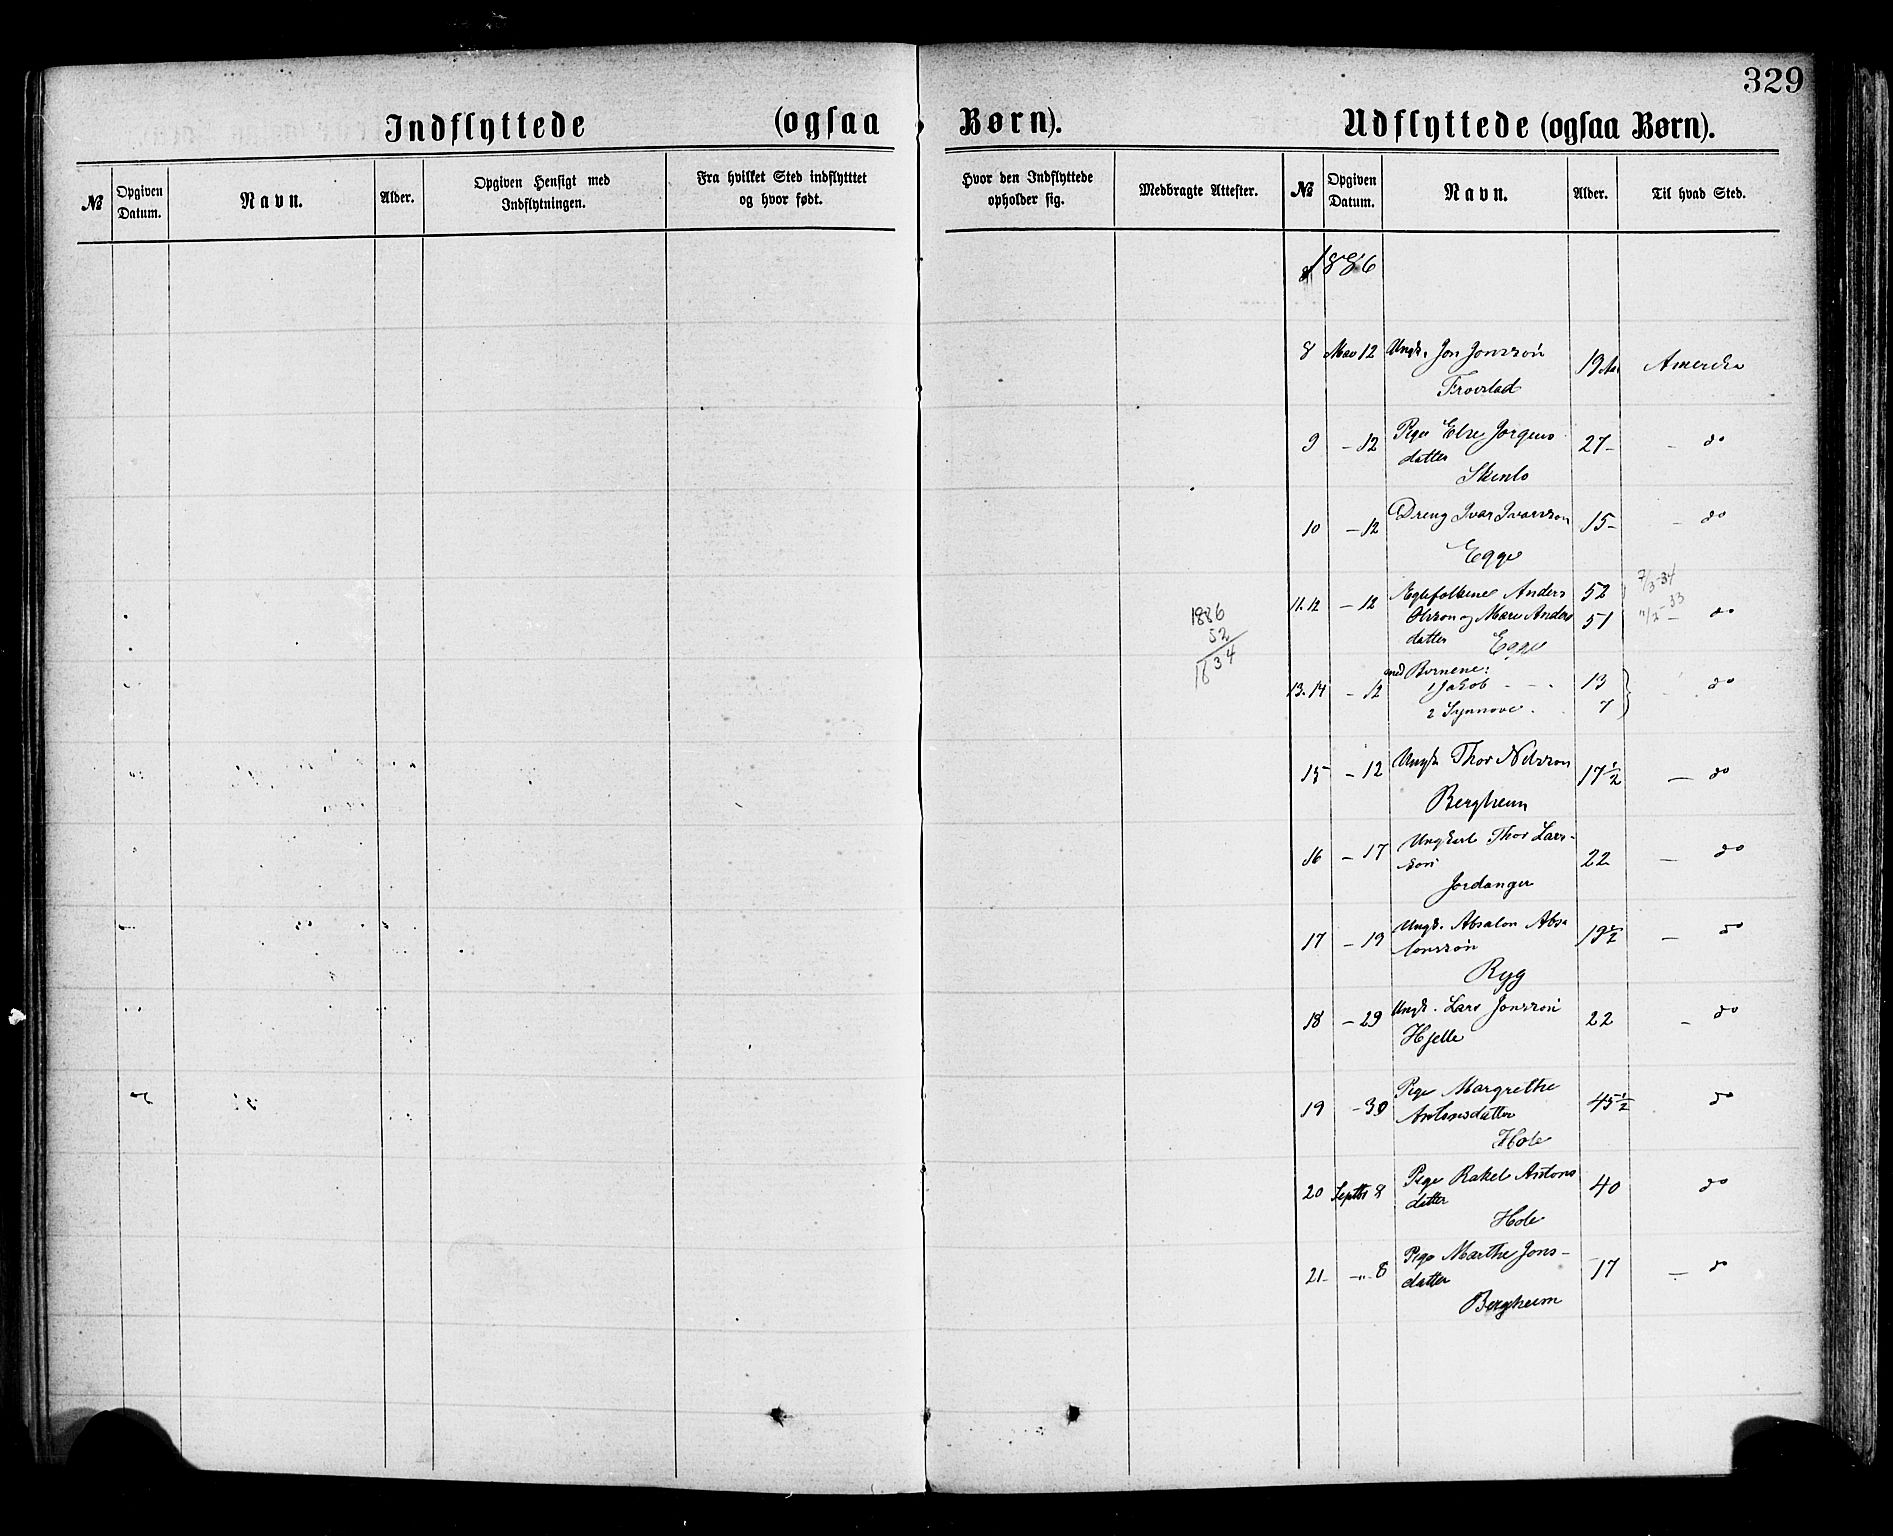 329
Indflyttede (ogsaa Børn).
Udflyttede (ogsaa Børn).
№
Opgiven Datum.
Navn.
Alder.
Opgiven Hensigt med Indflytningen.
Fra hvilket Sted indflytttet og hvor født.
Hvor den Indflyttede opholder sig.
Medbragte Attester.
№
Opgiven Datum.
Navn.
Alder.
Til hvad Sted.
1886
8 Mai 12 Ungk. Jon Jonssøn 19 Aar Amerika
9 - 12 Pige Else Jørgens 27 - - do
datter
Skenlo
10 - 12 Dreng Ivar Ivarsson 15 - - do
Egge
11.12 - 12 Egtefolkene Anders 52 7/3-34
Olsson og Mari Anders 51 - 33 - do
datter Egge
1886
52
1834
med Børnene:
13.14 - 12 1 Jakob - - 13 - do
2 Synnove 7
15 - 12 Ungk Thor Nilsson 17½ - do
Bergheim
16 - 17 Ungkarl Thor Lars- 22 - do
son
Jordanger
17 - 19 Ungk. Absalon Absa 19½ - do
lonssøn
Ryg
18 - 29 Ungk. Lars Jonssøn 22 - do
Hjelle
19 - 30 Pige Margrethe 45½ do
Antonsdatter
Hole
20 Septbr 8 Pige Rakel Antons 40 do
datter
Hole
21 - " - 8 Pige Marthe Jons- 17 - do
datter
Bergheim